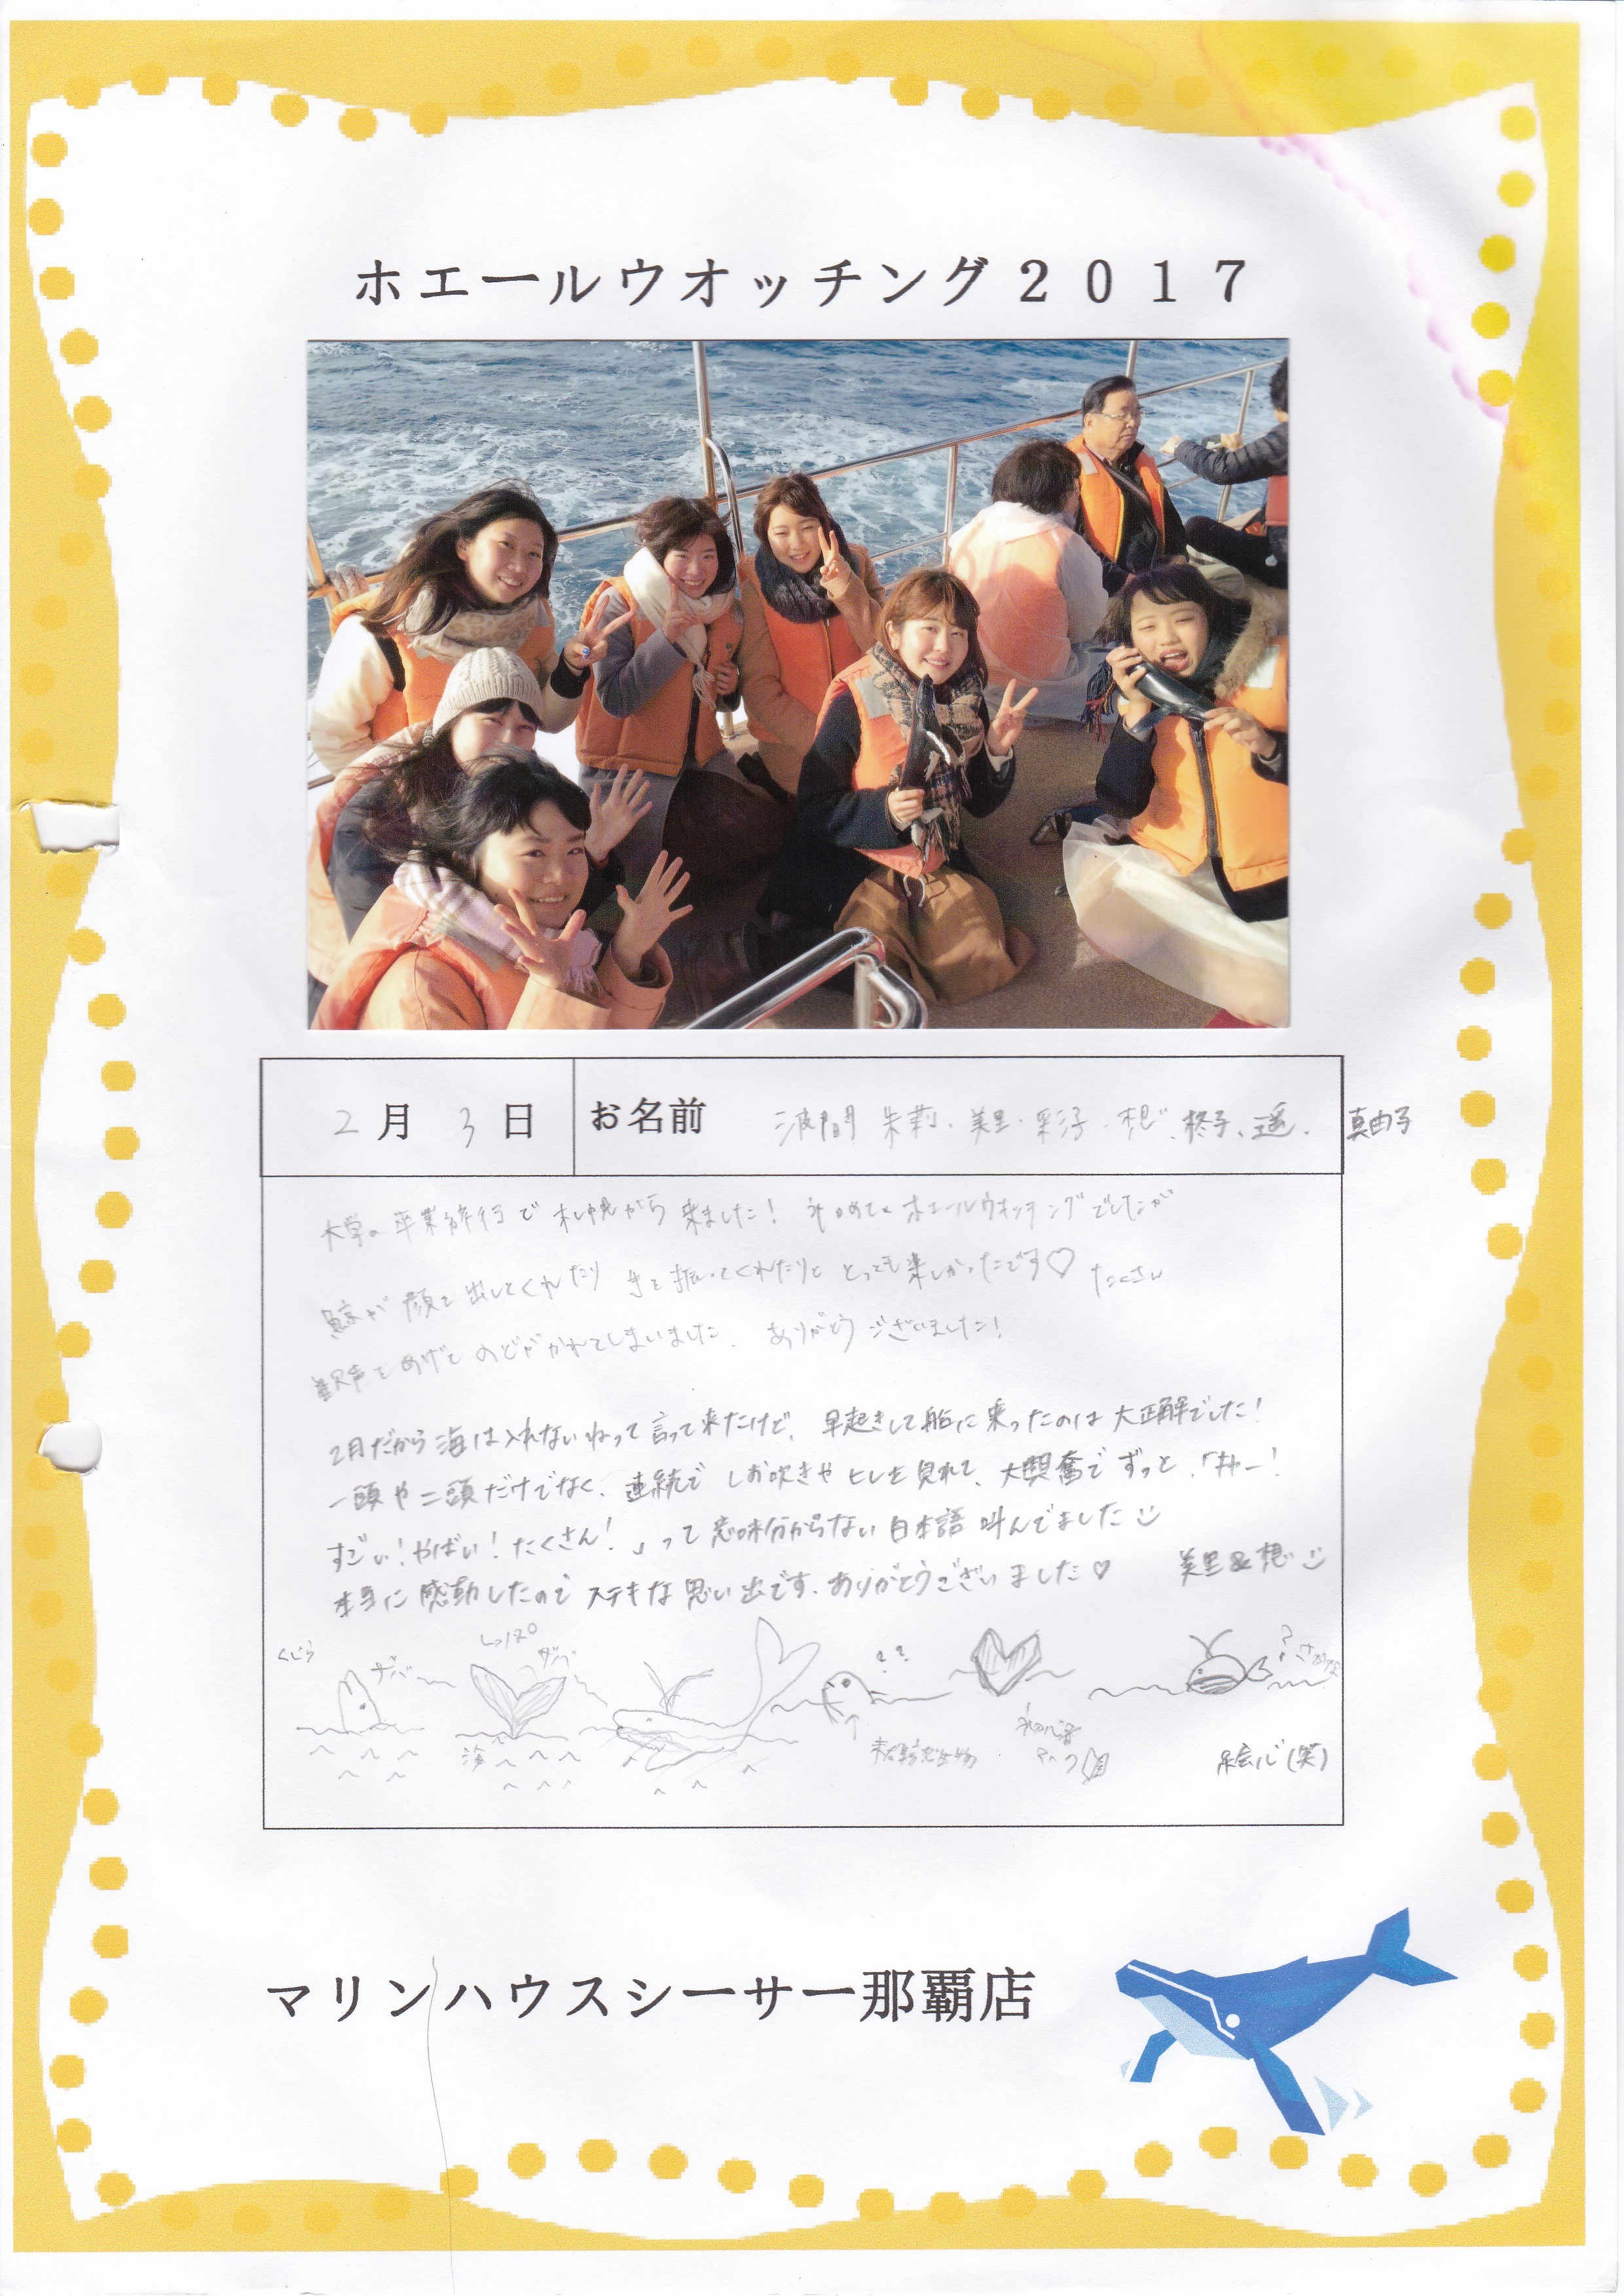 ホエールウオッチング２０１７
2月 3日 お名前 波間 朱莉、美里・彩子・想、柊子、遥、真由子
大学の卒業旅行で札幌から来ました！ 初めてのホエールウォッチングでしたが
鯨が顔を出してくれたり 手を振ってくれたりと とっても楽しかったです♡ たくさん
歓声をあげて のどがかれてしまいました。 ありがとうございました！
2月だから海は入れないねって言って来たけど、早起きして船に乗ったのは大正解でした！
一頭や二頭だけでなく、連続でしお吹きやヒレを見れて、大興奮でずっと、「キャー！
すごい！やばい！たくさん！」って意味分からない日本語叫んでました
本当に感動したのでステキな思い出です。ありがとうございました♡ 美里&想
くじら ザバー しっぽ ザバー ?? ?
海 ↑ 未確認生物 絵心(笑)
マリンハウスシーサー那覇店